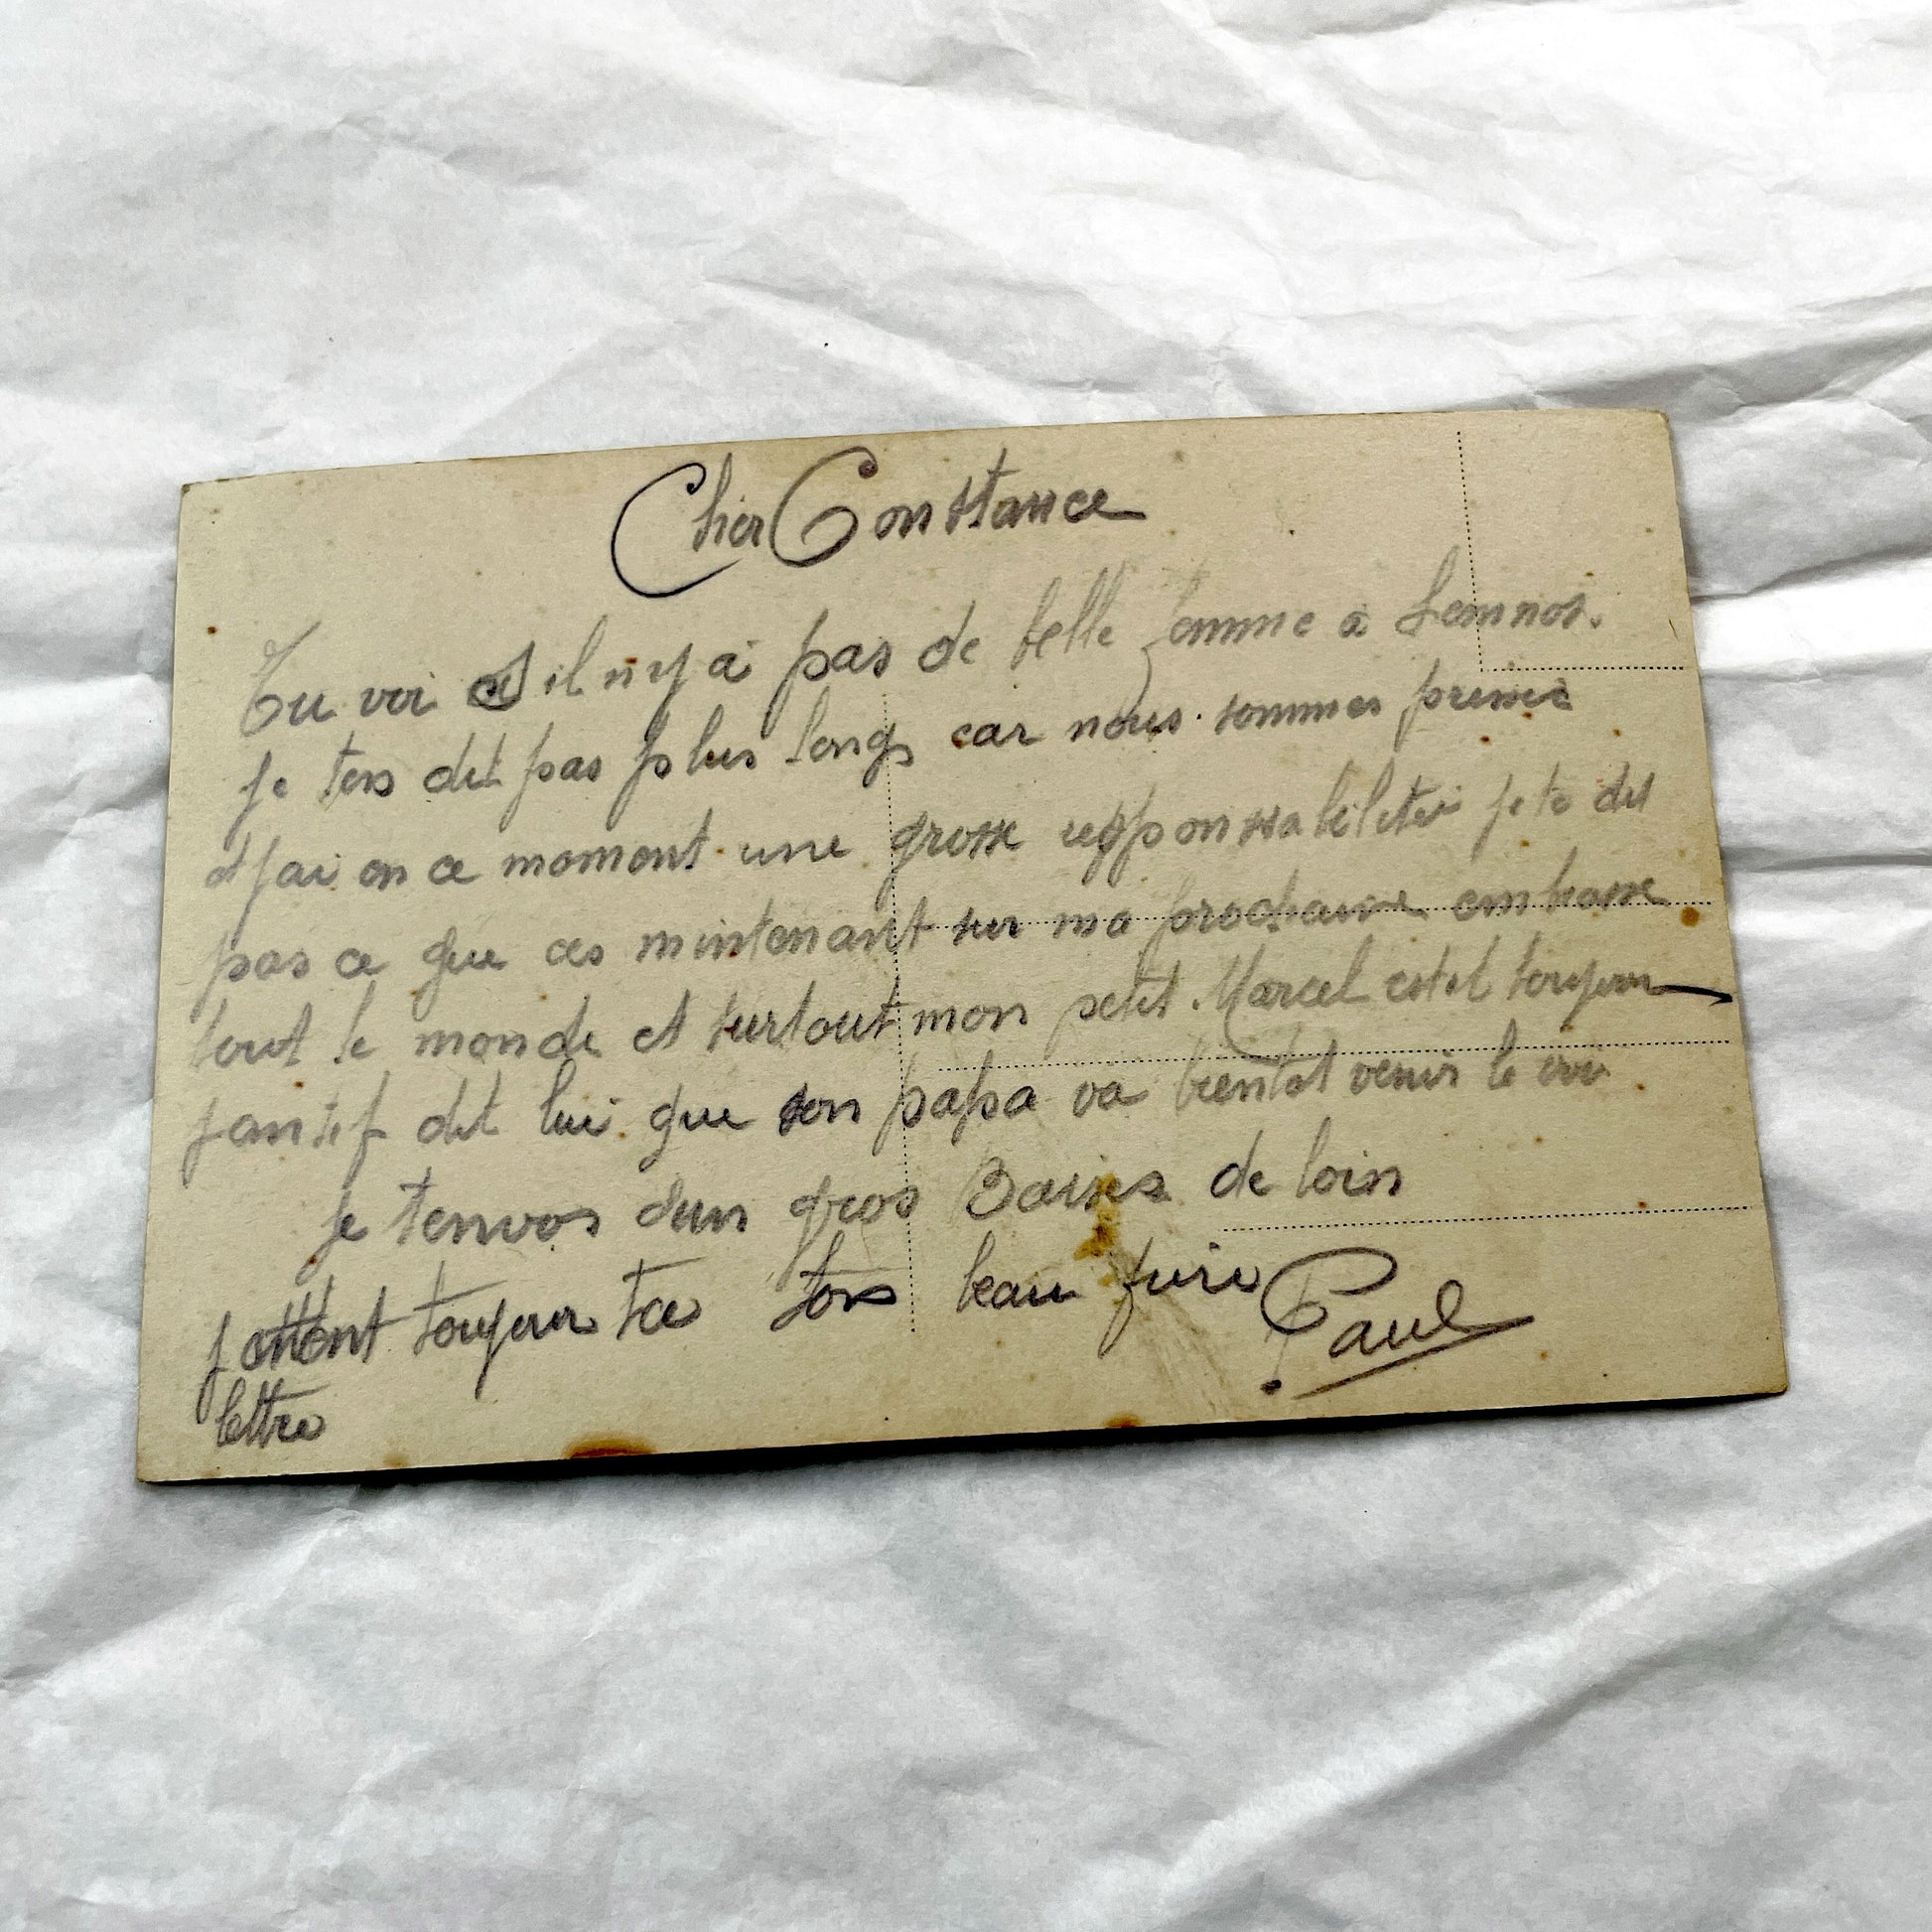 Cher Constance
Tu voi il n'y à pas de belle femme à Lemnos.
je ten dit pas plus long car nous sommes pressé
et jai en ce moment une grosse responssabiliter je te dit
pas ce que ces mintenant sur ma prochaine embrasse
tout le monde et surtout mon petit Marcel estil toujour
jantif dit lui que son papa va bientot venir le voi
Je tenvos dun gros Baises de loin
jattent toujour ta ton beau frere Paul
lettre